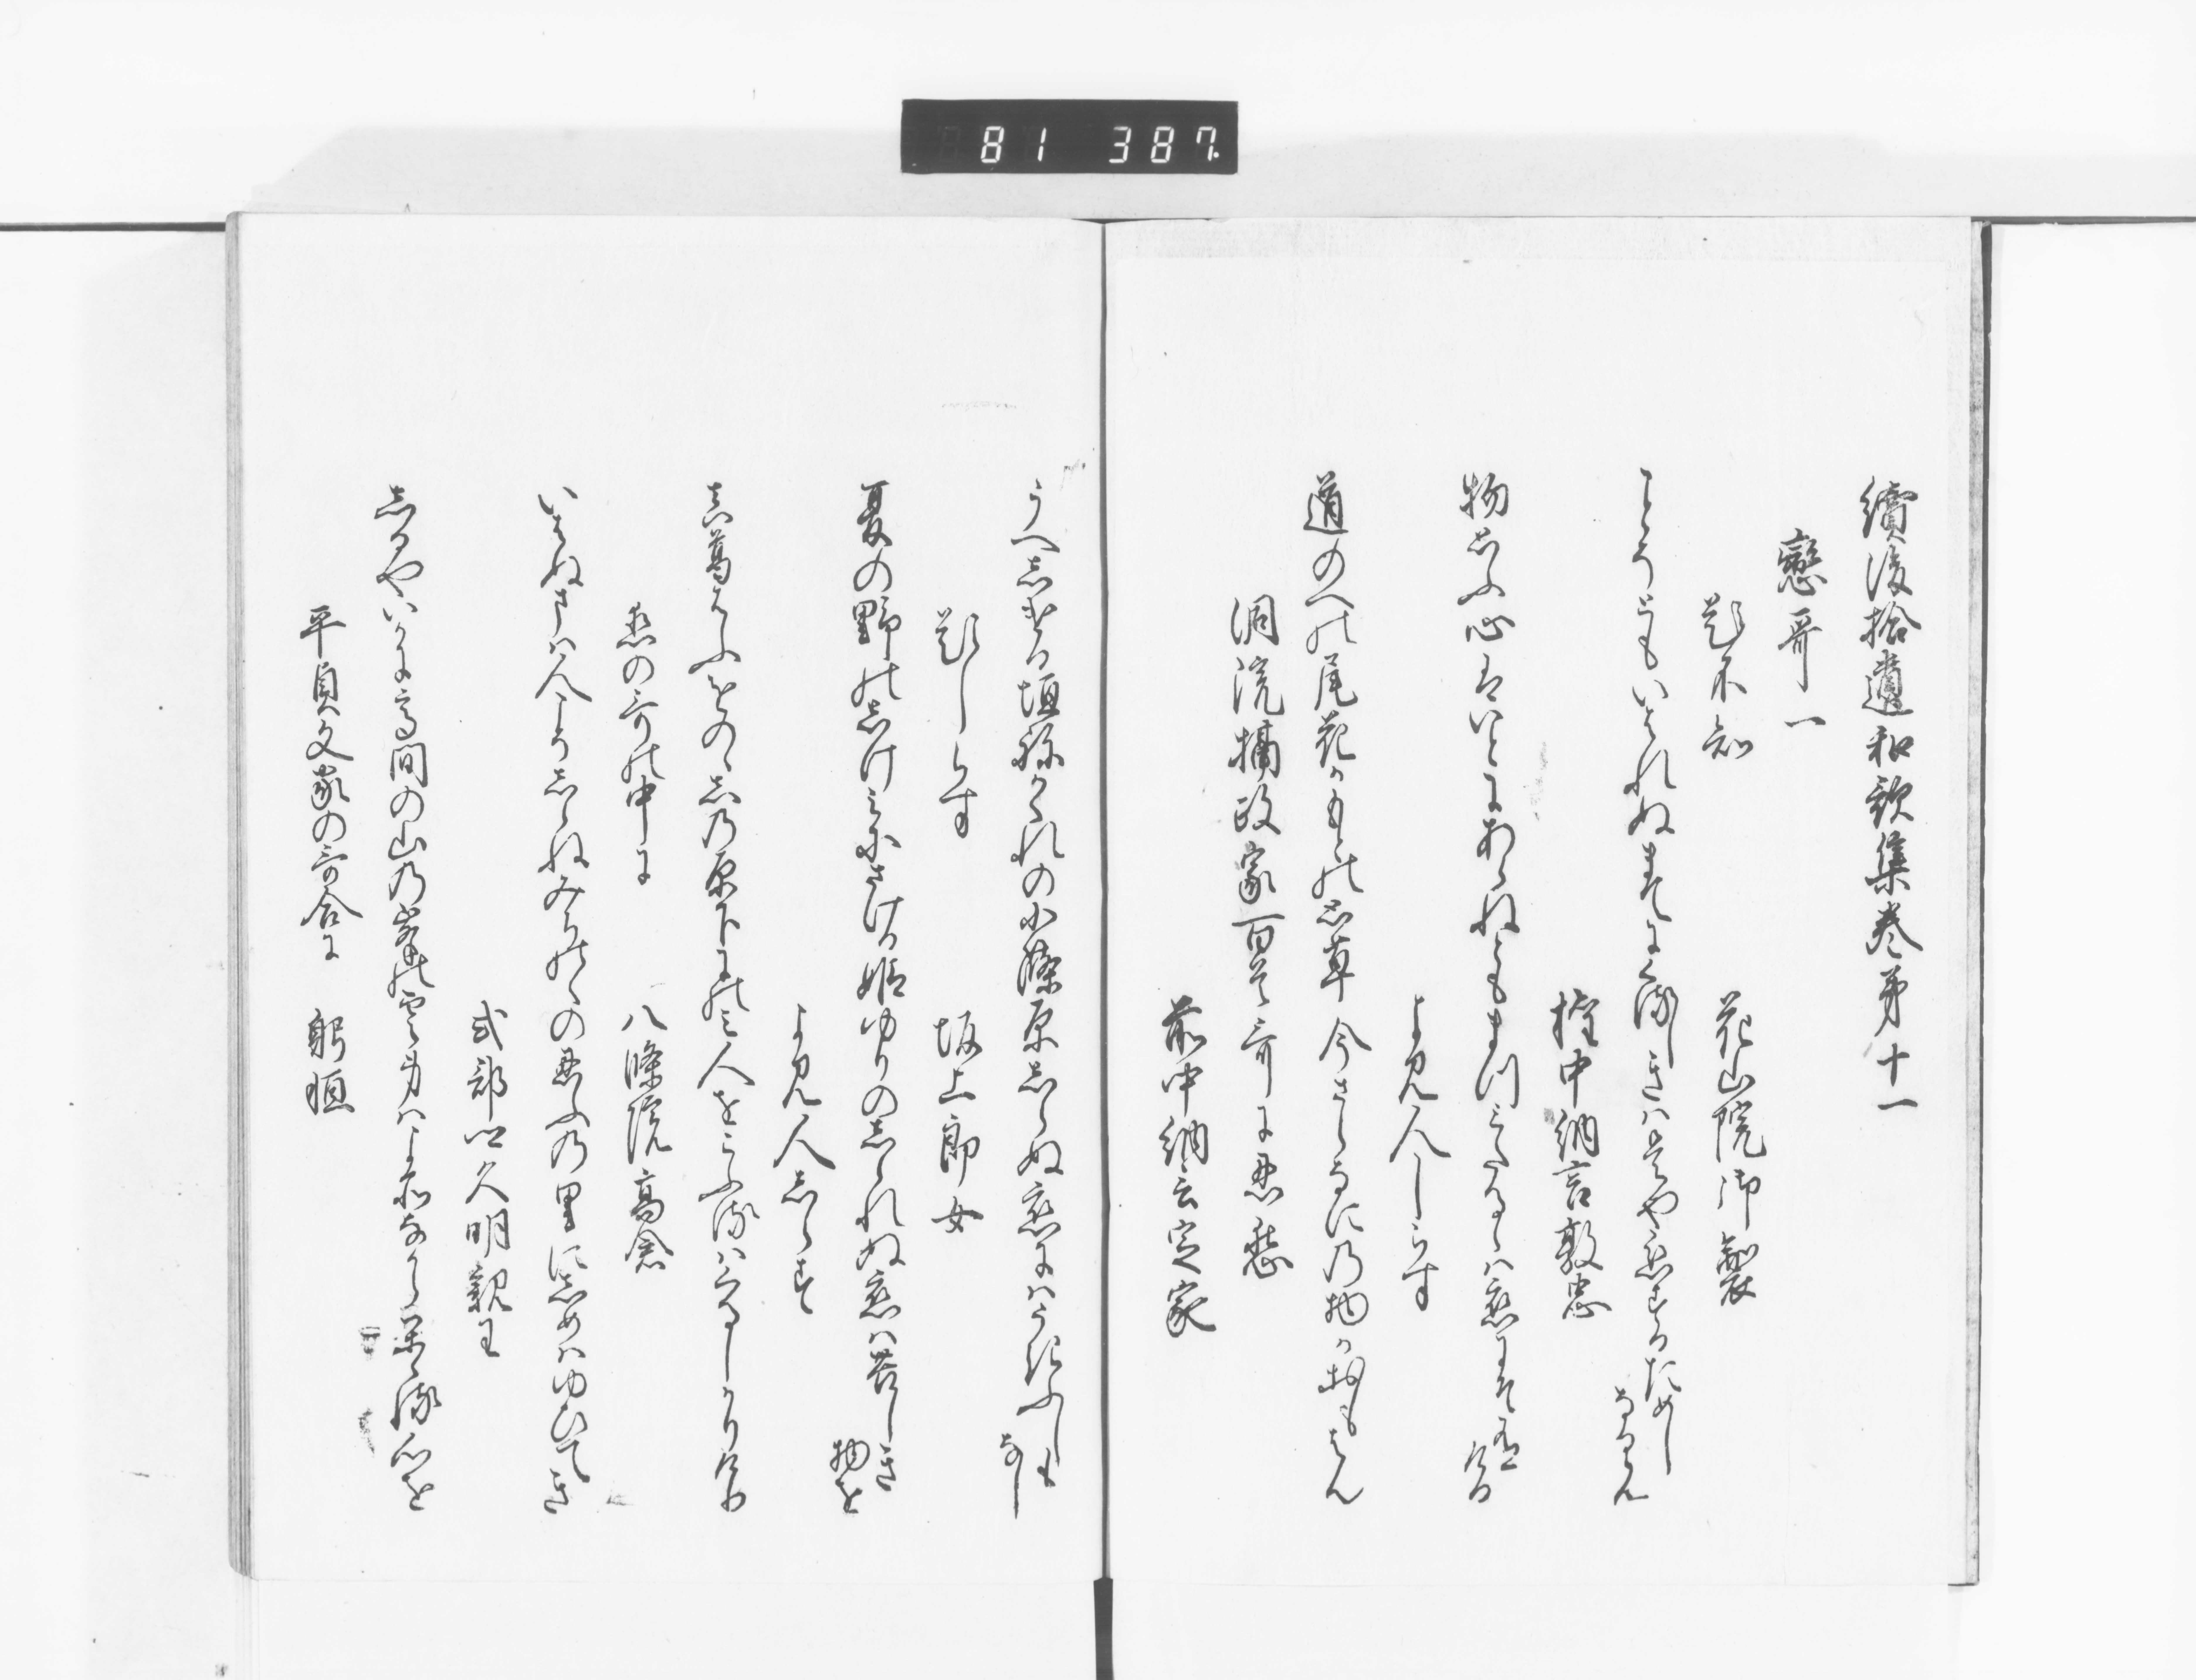 81 387
續後拾遺和歌集巻第十一
戀哥一
題不知 花山院御製
こゝろともいはれぬまてにくるしきはこや恋するのためし
なるらん
権中納言敦忠
物おもふ心はいとにあらねともまつみたるゝは恋にそ有
ける
よみ人しらす
道のへの尾花かもとの思草今さらなに乃物かおもはん
洞院摂政家百首哥に忍恋
前中納言定家
うへしける垣ねかくれの小篠原しられぬ恋はうきふしも
なし
題しらす 坂上郎女
夏の野のしけみにさける姫ゆりのしられぬ恋は苦しき
物を
よみ人しらす
真葛はふをのゝ志乃原下にのみ人をこふれはくるしかりけり
恋の哥の中に 八條院高倉
いはぬまは人こそしらねみちのくの忍ふ乃里にしめはゆひてき
式部卿久明親王
しるやいかに高間の山乃峯の雲よ
平貞文家の哥合に 躬恒